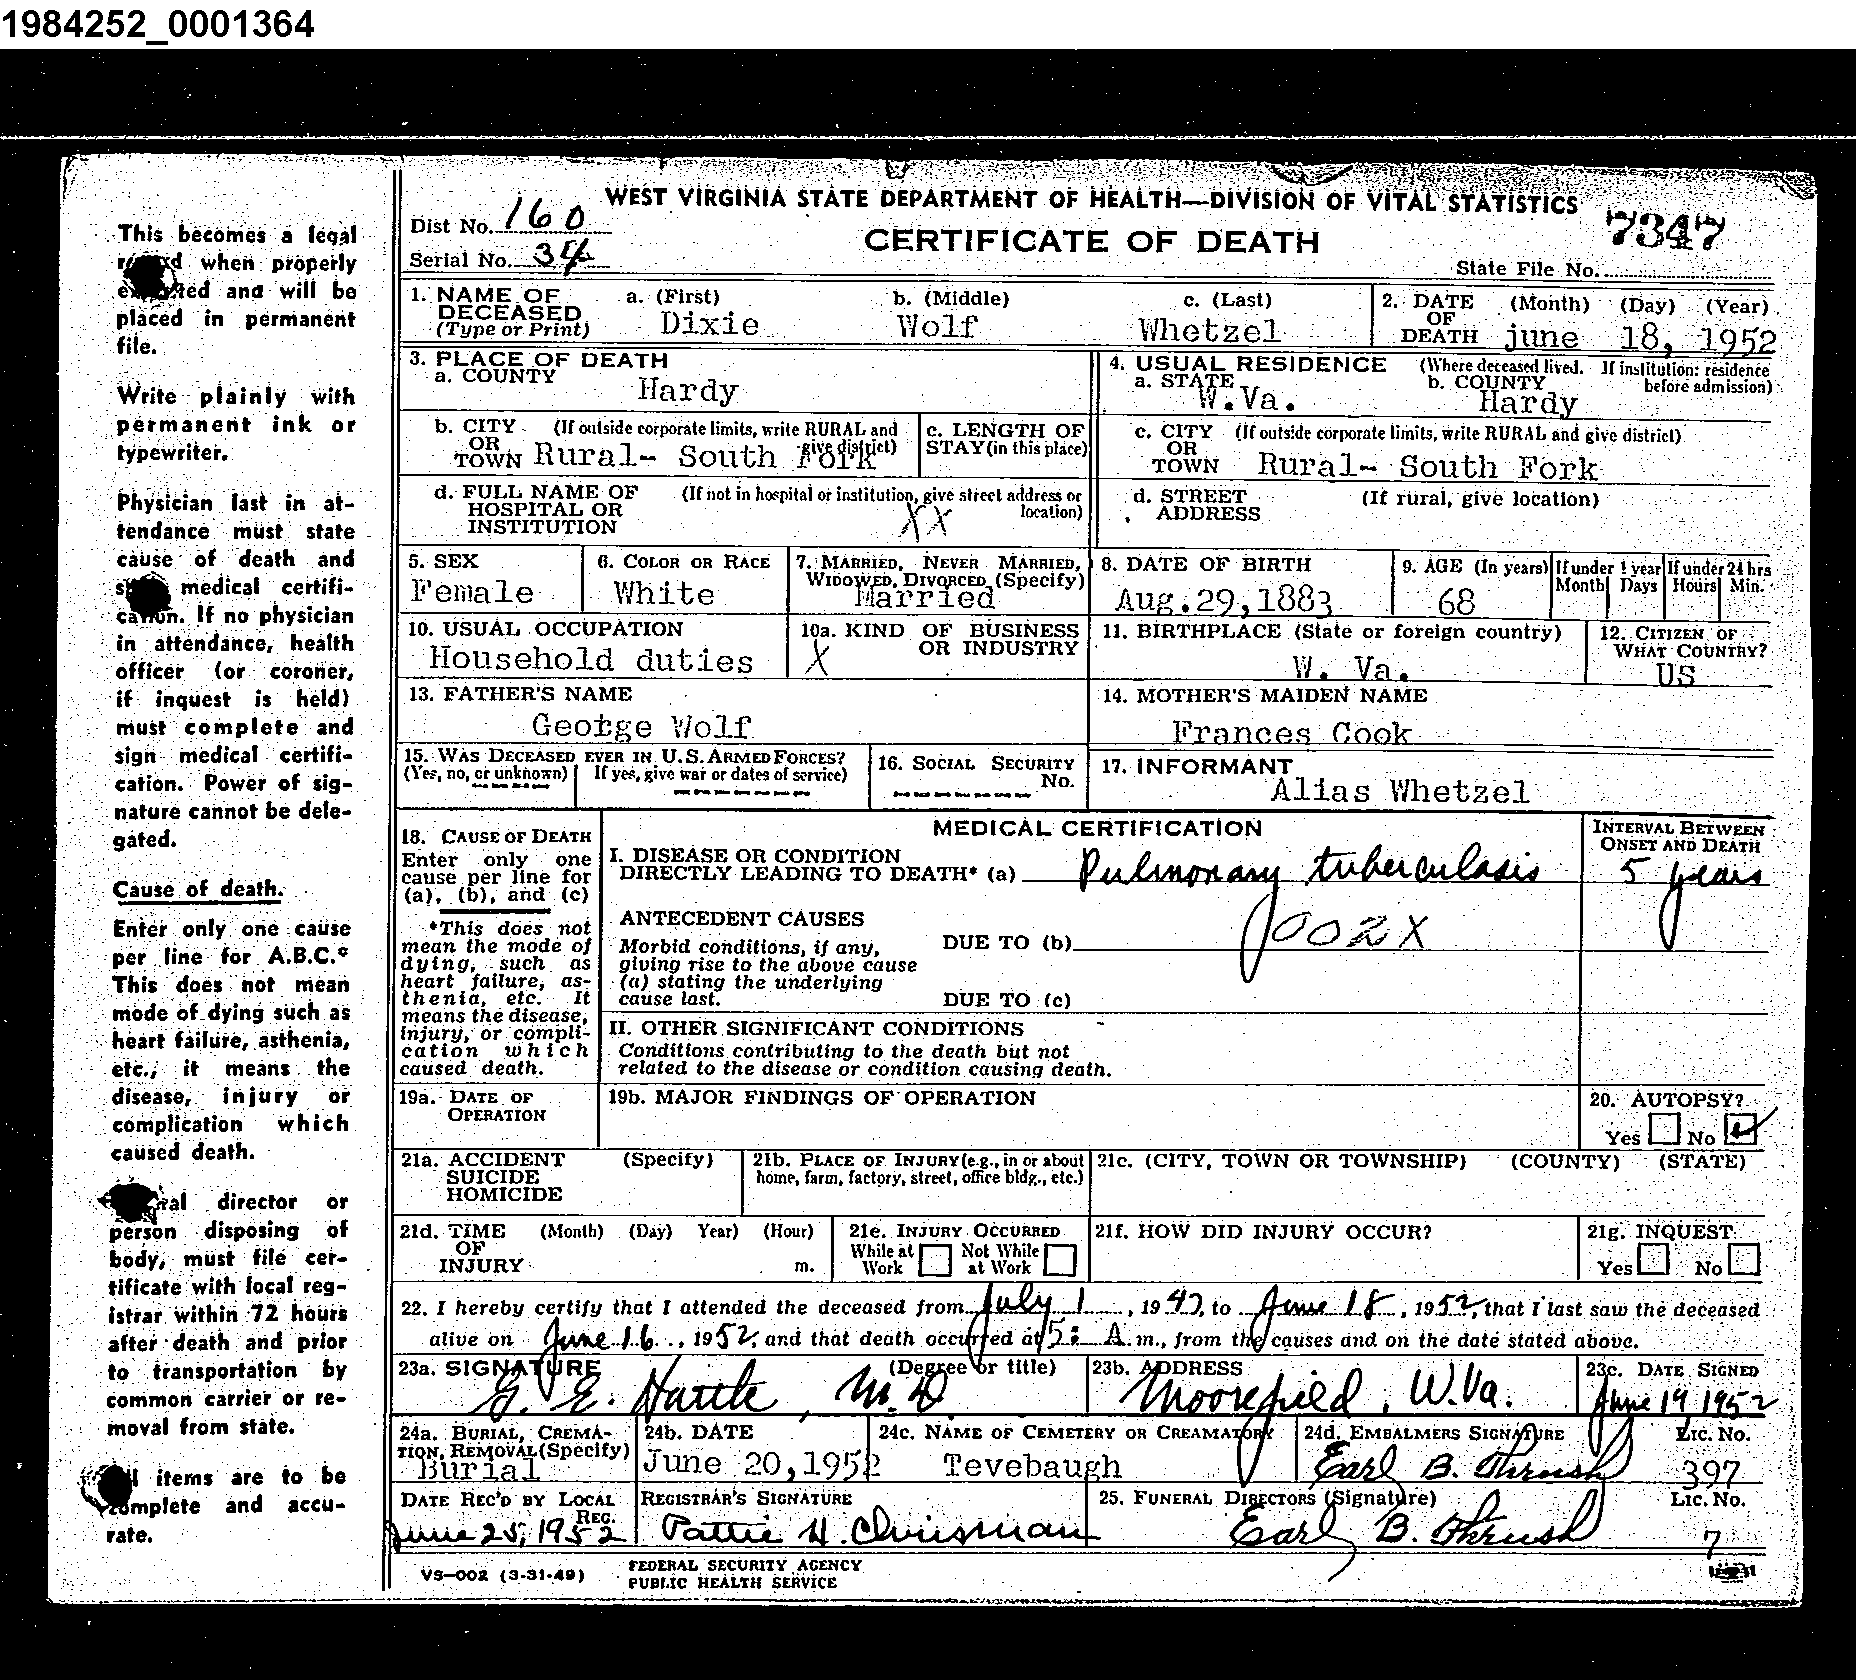 1984252_0001364
This becomes a legal
when properly
and will be
placed in permanent
file.
Write plainly with
permanent ink or
typewriter.
Physician last in at-
tendance must state
cause of death and
medical certifi-
cation. If no physician
in attendance, health
officer (or coroner,
if inquest is held)
must complete and
sign medical certifi-
cation. Power of sig-
nature cannot be dele-
gated.
Cause of death.
Enter only one cause
per line for A.B.C.*
This does not mean
mode of dying such as
heart failure, asthenia,
etc., it means the
disease, injury or
complication which
caused death.
director or
person disposing of
body, must file cer-
tificate with local reg-
istrar within 72 hours
after death and prior
to transportation by
common carrier or re-
moval from state.
items are to be
complete and accu-
rate.
WEST VIRGINIA STATE DEPARTMENT OF HEALTH—DIVISION OF VITAL STATISTICS
Dist No. 160
CERTIFICATE OF DEATH
7347
Serial No. 34
State File No.
1. NAME OF DECEASED (Type or Print) a. (First) Dixie b. (Middle) Wolf c. (Last) Whetzel
2. DATE OF DEATH (Month) (Day) (Year) june 18, 1952
3. PLACE OF DEATH
a. COUNTY Hardy
4. USUAL RESIDENCE (Where deceased lived. If institution: residence before admission)
a. STATE W.Va. b. COUNTY Hardy
b. CITY OR TOWN (If outside corporate limits, write RURAL and give district) Rural- South Fork
c. LENGTH OF STAY (in this place)
c. CITY OR TOWN (If outside corporate limits, write RURAL and give district) Rural- South Fork
d. FULL NAME OF HOSPITAL OR INSTITUTION (If not in hospital or institution, give street address or location) XX
d. STREET ADDRESS (If rural, give location)
5. SEX Female
6. COLOR OR RACE White
7. MARRIED, NEVER MARRIED, WIDOWED, DIVORCED (Specify) Married
8. DATE OF BIRTH Aug.29,1883
9. AGE (In years) 68 If under 1 year Month Days If under 24 hrs Hours Min.
10. USUAL OCCUPATION Household duties
10a. KIND OF BUSINESS OR INDUSTRY X
11. BIRTHPLACE (State or foreign country) W. Va.
12. CITIZEN OF WHAT COUNTRY? US
13. FATHER'S NAME George Wolf
14. MOTHER'S MAIDEN NAME Frances Cook
15. WAS DECEASED EVER IN U.S. ARMED FORCES? (Yes, no, or unknown) If yes, give war or dates of service)
16. SOCIAL SECURITY No.
17. INFORMANT Alias Whetzel
18. CAUSE OF DEATH
Enter only one
cause per line for
(a), (b), and (c)
*This does not
mean the mode of
dying, such as
heart failure, as-
thenia, etc. It
means the disease,
injury, or compli-
cation which
caused death.
MEDICAL CERTIFICATION
INTERVAL BETWEEN ONSET AND DEATH
I. DISEASE OR CONDITION
DIRECTLY LEADING TO DEATH* (a) Pulmonary tuberculosis 5 years
ANTECEDENT CAUSES
002X
Morbid conditions, if any, DUE TO (b)
giving rise to the above cause
(a) stating the underlying
cause last. DUE TO (c)
II. OTHER SIGNIFICANT CONDITIONS
Conditions contributing to the death but not
related to the disease or condition causing death.
19a. DATE OF OPERATION
19b. MAJOR FINDINGS OF OPERATION
20. AUTOPSY? Yes No
21a. ACCIDENT SUICIDE HOMICIDE (Specify)
21b. PLACE OF INJURY (e.g., in or about home, farm, factory, street, office bldg., etc.)
21c. (CITY, TOWN OR TOWNSHIP) (COUNTY) (STATE)
21d. TIME OF INJURY (Month) (Day) Year) (Hour) m.
21e. INJURY OCCURRED While at Work Not While at Work
21f. HOW DID INJURY OCCUR?
21g. INQUEST Yes No
22. I hereby certify that I attended the deceased from July 1, 1947, to June 18, 1952, that I last saw the deceased
alive on June 16, 1952, and that death occurred at 5: A.m., from the causes and on the date stated above.
23a. SIGNATURE (Degree or title) M.D
23b. ADDRESS Moorefield, W.Va.
23c. DATE SIGNED June 19, 1952
24a. BURIAL, CREMATION, REMOVAL (Specify) Burial
24b. DATE June 20,1952
24c. NAME OF CEMETERY OR CREAMATORY Tevebaugh
24d. EMBALMERS SIGNATURE Earl B. Thrush LIC. No. 397
DATE REC'D BY LOCAL REG. June 25, 1952
REGISTRAR'S SIGNATURE Pattie H. Chrisman
25. FUNERAL DIRECTORS (Signature) Earl B. Thrush LIC. No. 7
VS-002 (3-31-49)
FEDERAL SECURITY AGENCY
PUBLIC HEALTH SERVICE